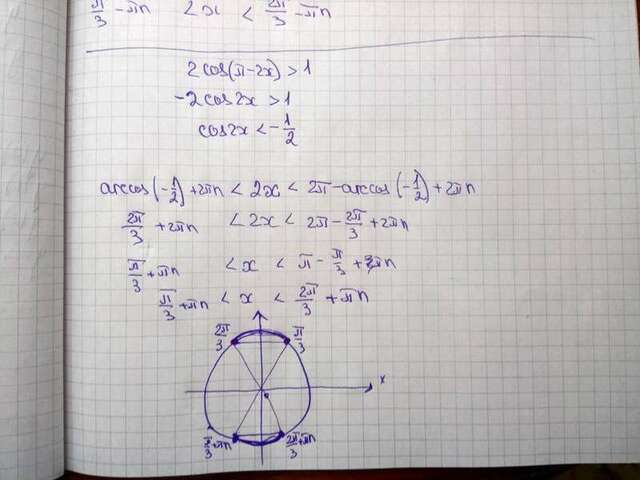 π/3 - πn < x < 2π/3 - πn
2cos(π-2x) > 1
-2cos2x > 1
cos2x < -1/2
arccos(-1/2) + 2πn < 2x < 2π - arccos(-1/2) + 2πn
2π/3 + 2πn < 2x < 2π - 2π/3 + 2πn
π/3 + πn < x < π - π/3 + πn
π/3 + πn < x < 2π/3 + πn
2π/3 π/3
x
0
π/3 + πn 2π/3 + πn